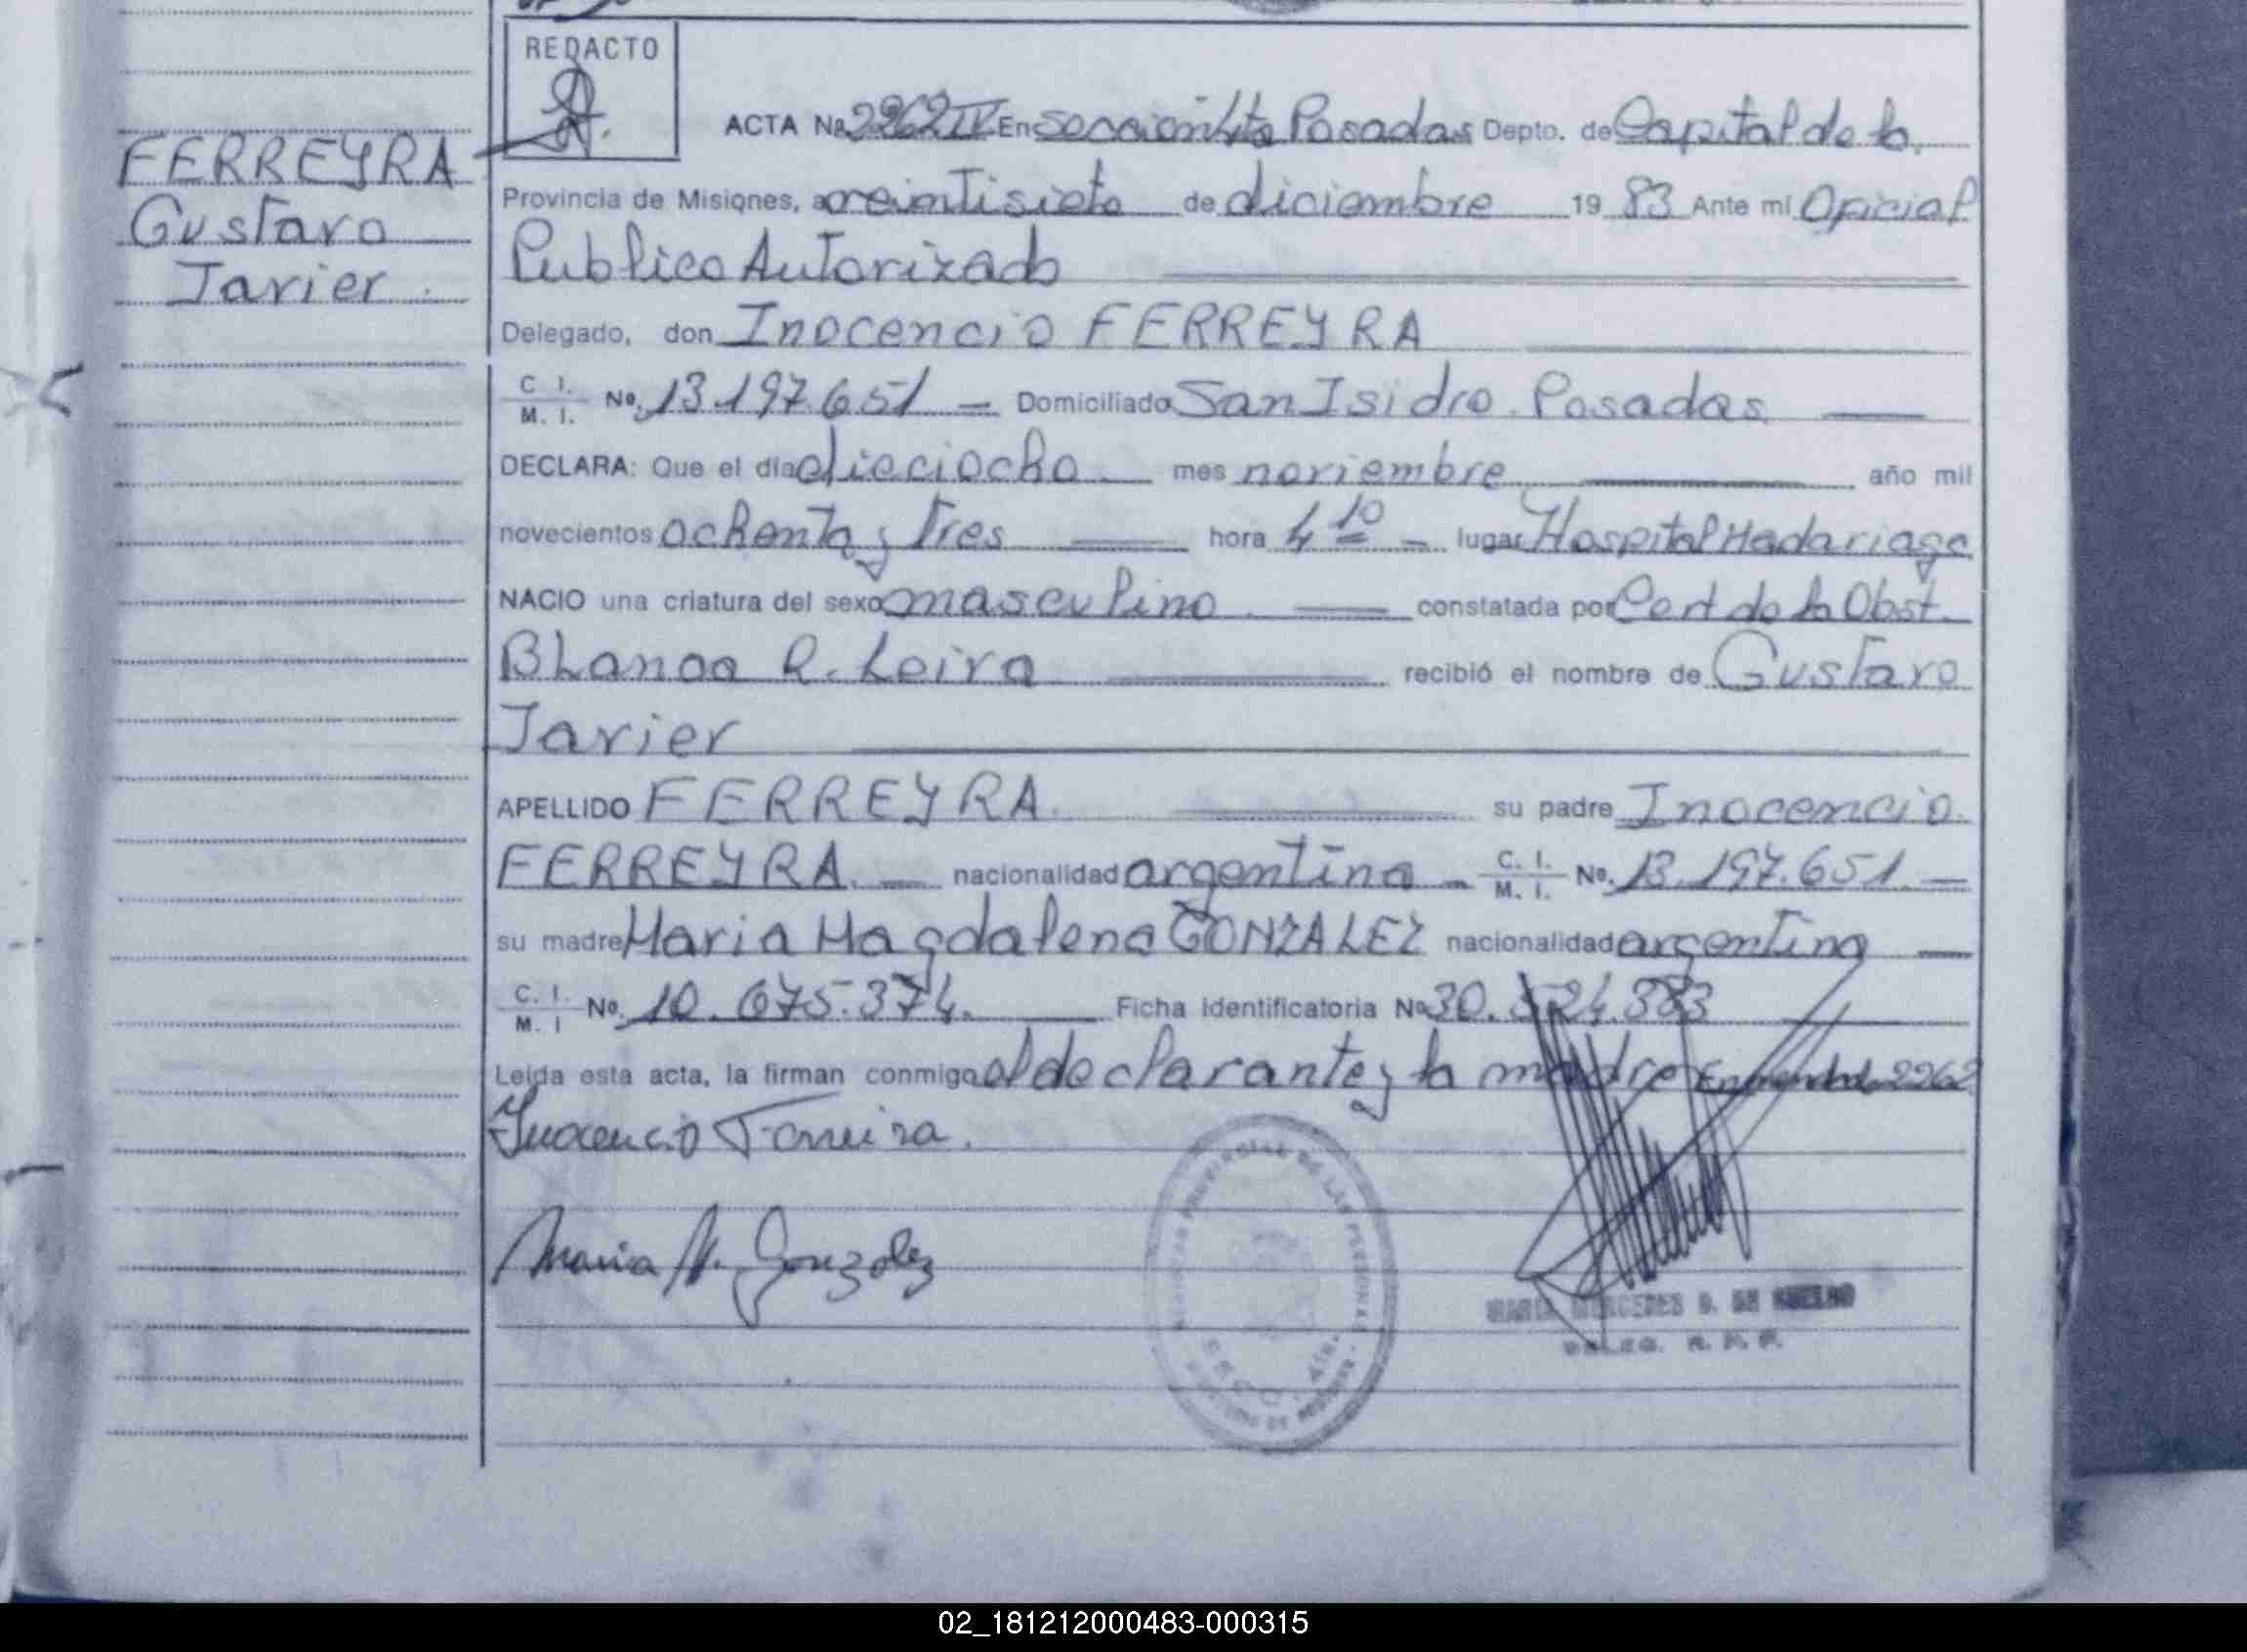 REDACTO
FERREYRA
Gustavo
Javier
ACTA Nº 2262 IV En sección 4ta Posadas Depto. de Capital de la
Provincia de Misiones, a veintisiete de diciembre 19 83 Ante mí Oficial
Publico Autorizado
Delegado, don Inocencio FERREYRA
C. I. M. I. Nº. 13.197.651 — Domiciliado San Isidro. Posadas
DECLARA: Que el día dieciocho mes noviembre año mil
novecientos ochenta y tres hora 4 10 lugar Hospital Madariaga
NACIO una criatura del sexo masculino constatada por Cert de la Obst.
Blanca R. Leiva recibió el nombre de Gustavo
Javier
APELLIDO FERREYRA. su padre Inocencio
FERREYRA. nacionalidad argentina C. I. M. I. Nº. 13.197.651.
su madre Maria Magdalena GONZALEZ nacionalidad argentina
C. I. M. I Nº. 10.675.374. Ficha Identificatoria Nº 30.524.383
Leída esta acta, la firman conmigo el declarante y la madre Enmendado 2262
Inocencio Ferreira.
Maria M. Gonzalez
MARIA MERCEDES
02_181212000483-000315